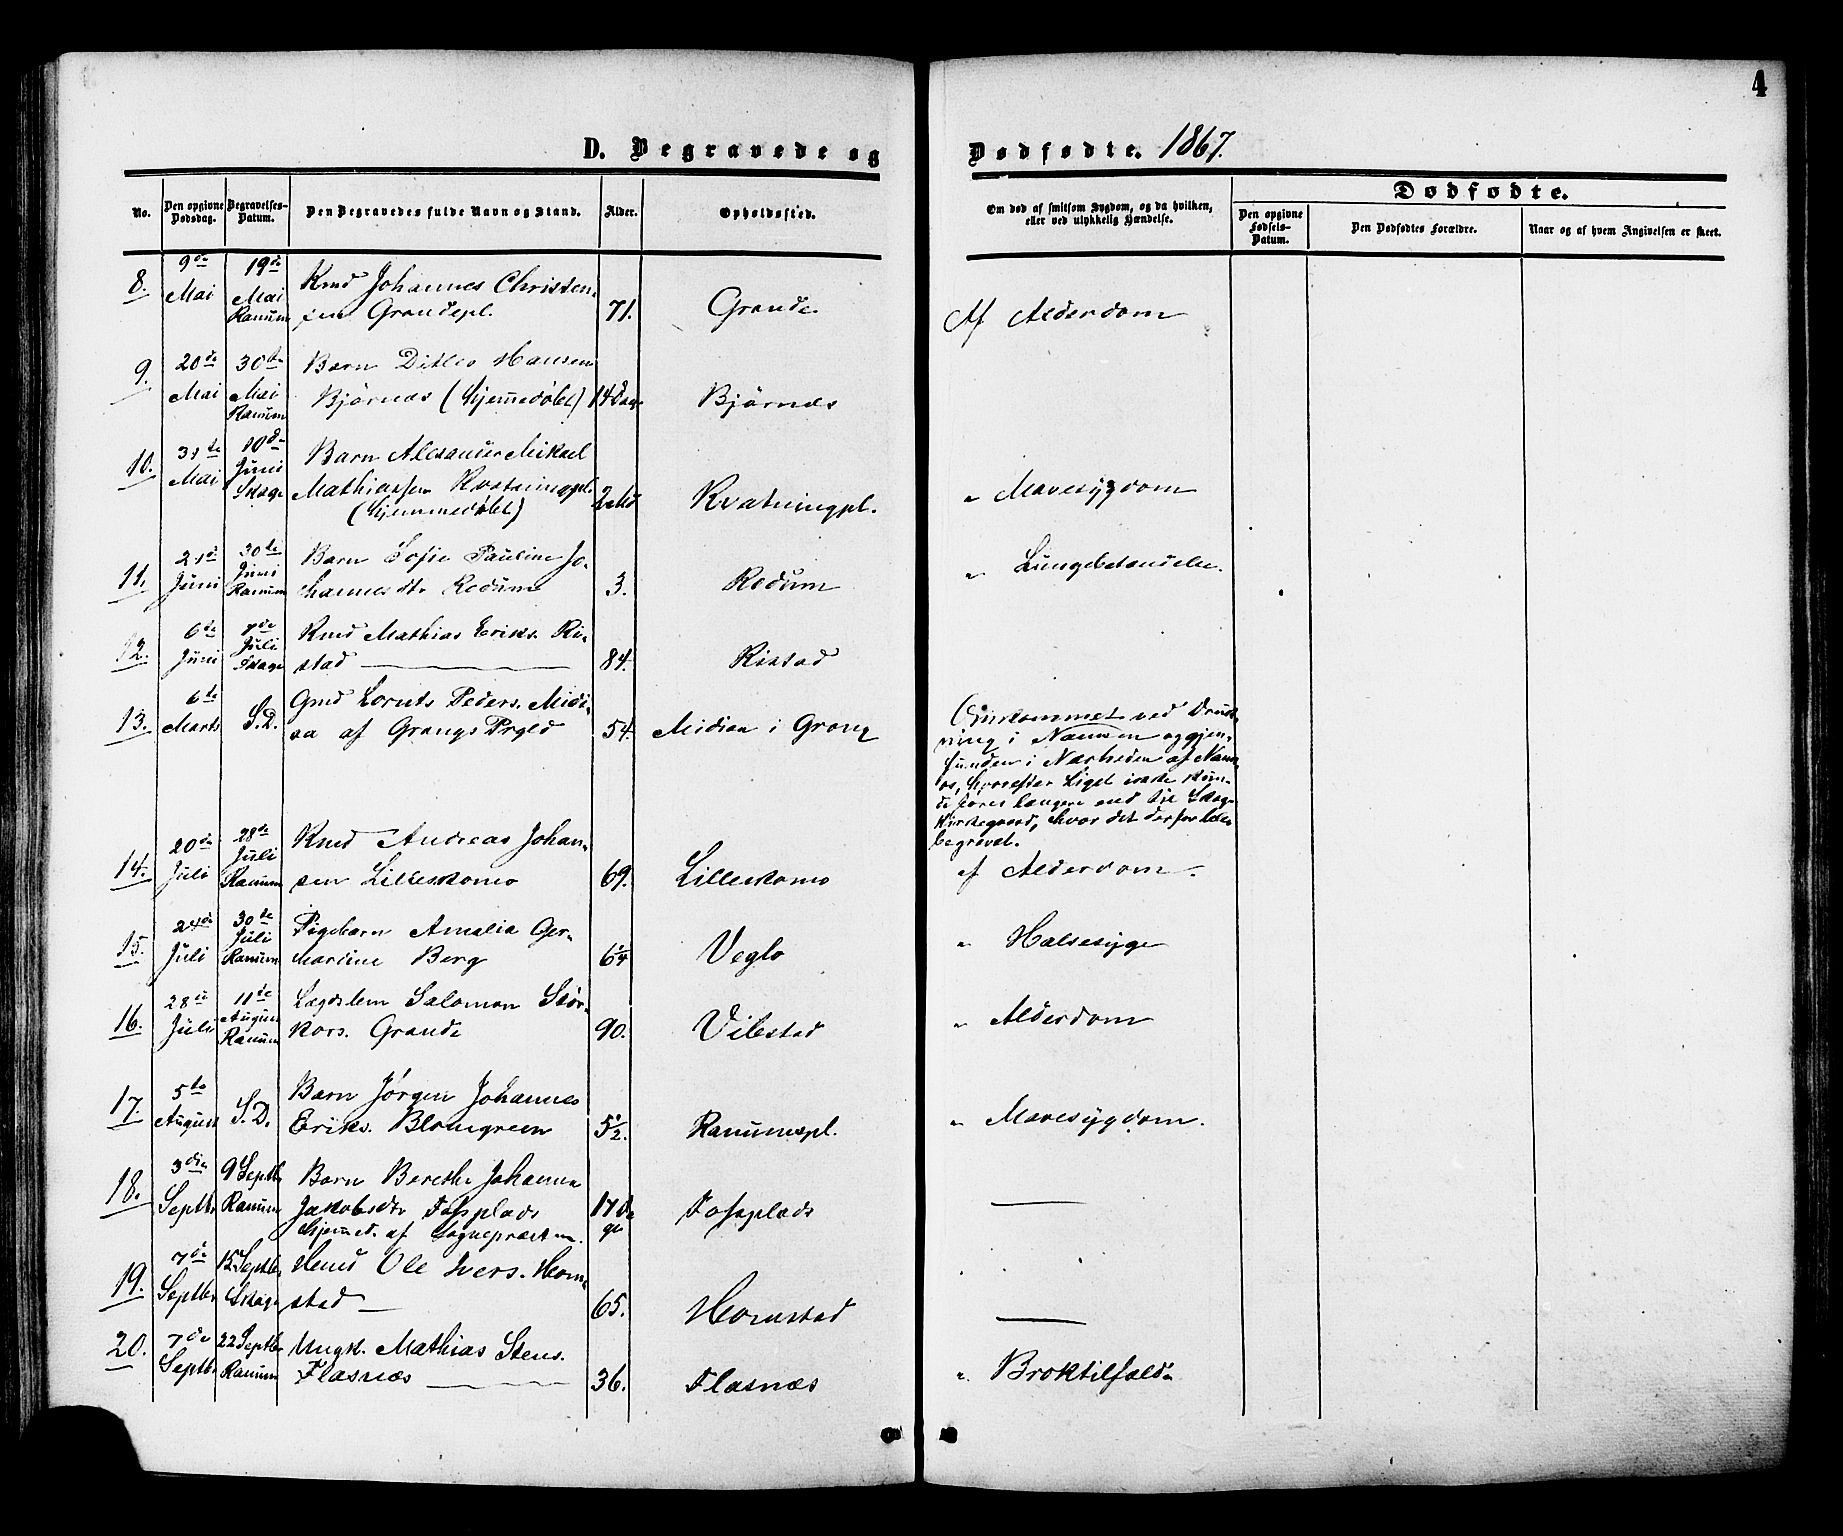 4
D. Begravede og Dødfødte. 1867.
No.
Den opgivne Dødsdag.
Begravelses-Datum.
Den Begravedes fulde Navn og Stand.
Alder.
Opholdssted.
Om død af smitsom Sygdom, og da hvilken, eller ved ulykkelig Hændelse.
Dødfødte.
Den opgivne Fødsels-Datum.
Den Dødfødtes Forældre.
Naar og af hvem Angivelsen er skeet.
8. 9de Mai 19de Mai Ranum
Kmd Johannes Christen-
sen Grandepl. 71. Grande. Af Alderdom
9. 20de Mai 30te Mai Ranum
Barn Ditlev Hansen
Bjørnæs (Hjemmedøbt) 14 Dage Bjørnæs
10. 31te Mai 10de Juni Skage
Barn Alexander Mikael
Mathiassen Kvatningpl.
(Hjemmedøbt) 2 Md Kvatningpl. " Mavesygdom
11. 21de Juni 30te Juni Ranum
Barn Sofie Pauline Jo-
hannesdtr Rodum 3. Rodum " Lungebetændelse.
12. 6te Juni 7de Juli Skage
Kmd Mathias Eriks. Ri-
stad 84. Ristad
13. 6te Marts S.D.
Gmd Lornts Peders. Midi-
aa af Grongs Prgld 54. Midiaa i Grong
Omkommet ved Druk-
ning i Namsen og gjen-
funden i Nærheden af Nam-
os, hvorefter Liget ikke kun-
de føres længere end til Skage
Kirkegaard, hvor det derfor blev
begravet.
14. 20de Juli 28de Juli Ranum
Kmd Andreas Johan-
sen Lilleskomo 69. Lilleskomo af Alderdom.
15. 24de Juli 30te Juli Ranum
Pigebarn Amalia Ger-
hardine Berg 6¼ Veglo " Halsesyge
16. 28de Juli 11te August Ranum
Lægdslem Salomon Stør-
kors. Grande 90. Vibstad " Alderdom
17. 5te August S.D.
Barn Jørgen Johannes
Eriks. Blomgreen 5½. Ranumspl. " Mavesygdom.
18. 3die Septbr 9 Septbr Ranum
Barn Berethe Johanna
Jakobsdtr Fossplads
Hjemmed. af Sognepræsten. 17 Da-
ge Fossplads
19. 7de Septbr 15 Septbr Skage
Hmd Ole Ivers. Hom-
stad 65. Homstad
20. 7de Septbr 22 Septbr Ranum
Ungk. Mathias Stens.
Flasnæs 36. Flasnæs " Broktilfælde